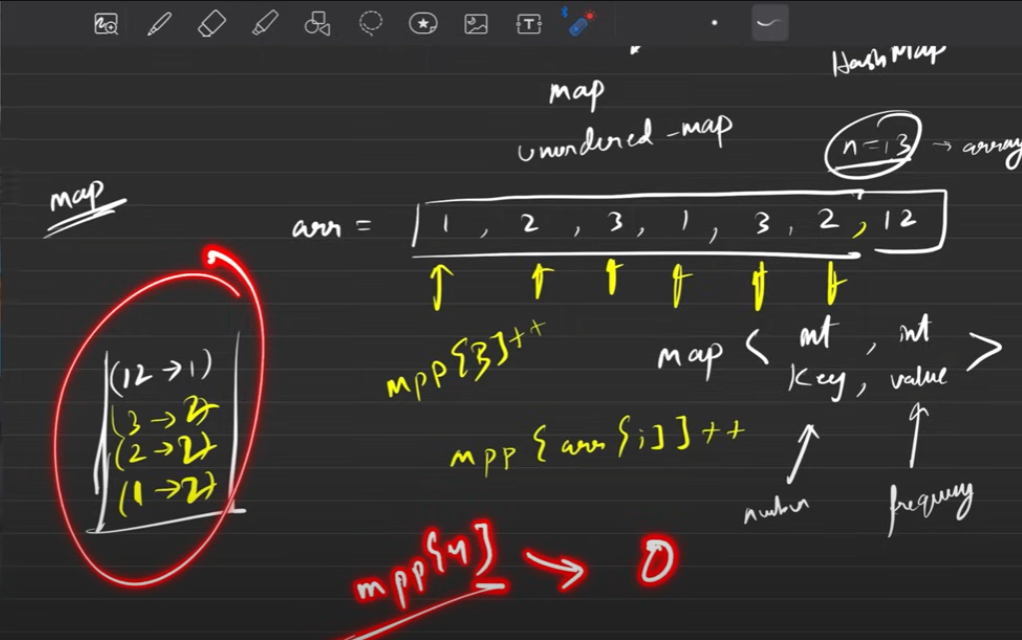 HashMap
map
unordered_map
n = 13 → array
map
arr = 1, 2, 3, 1, 3, 2, 12
mpp[3]++
map < int, int >
key, value
(12 → 1)
(3 → 2)
(2 → 2)
(1 → 2)
mpp[arr[i]]++
number
frequency
mpp[4] → 0